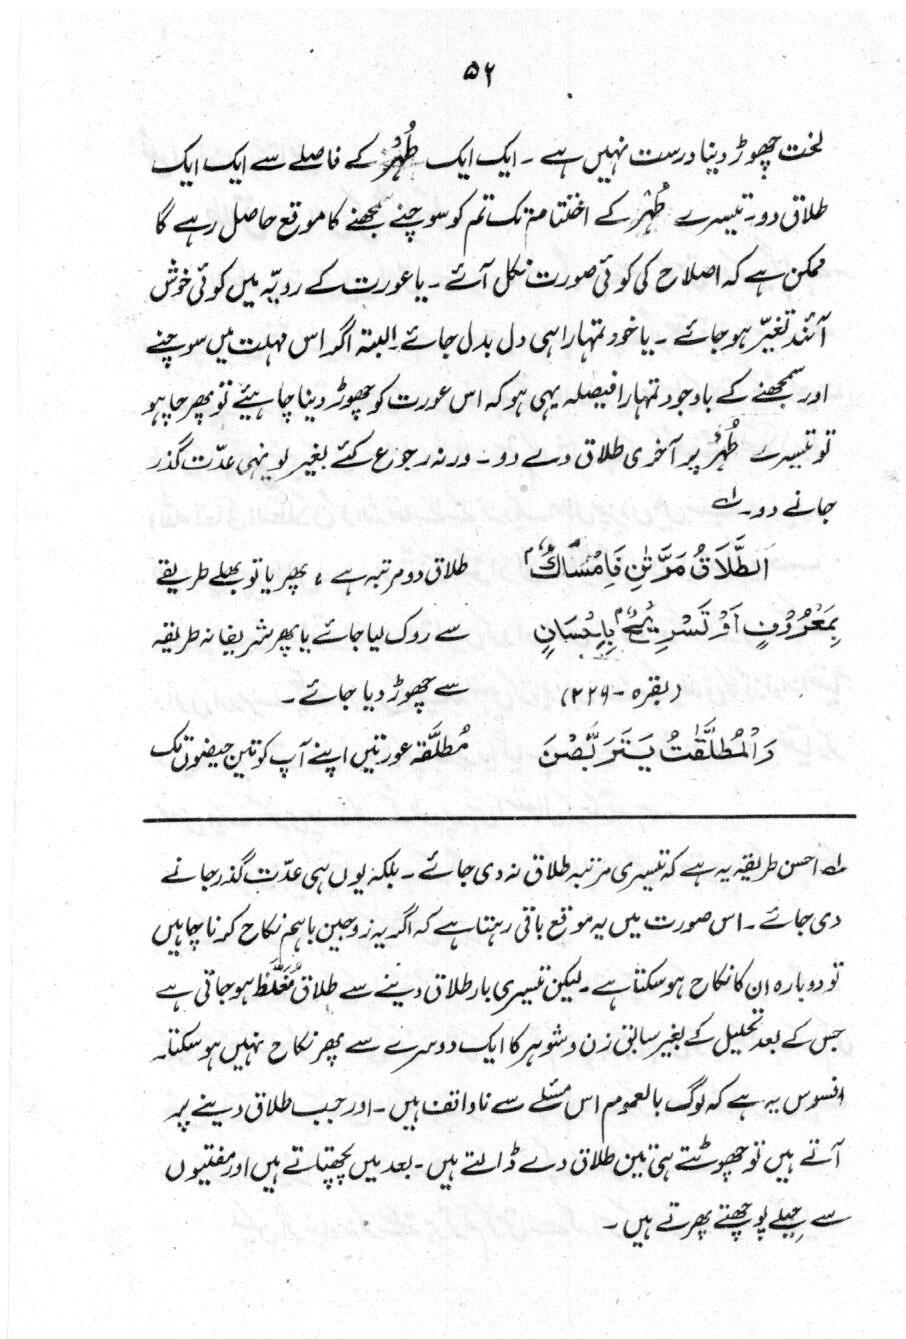 ۵۶
لخت چھوڑ دینا درست نہیں ہے ۔ ایک ایک طُہْر کے فاصلے سے ایک ایک
طلاق دو۔ تیسرے طُہْر کے اختتام تک تم کو سوچنے سمجھنے کا موقع حاصل رہے گا
ممکن ہے کہ اصلاح کی کوئی صورت نکل آئے ۔ یا عورت کے رویّہ میں کوئی خوش
آئند تغیّر ہو جائے ۔ یا خود تمہارا ہی دل بدل جائے۔ البتہ اگر اس مہلت میں سوچنے
اور سمجھنے کے باوجود تمہارا فیصلہ یہی ہو کہ اس عورت کو چھوڑ دینا چاہیئے تو پھر چاہو
تو تیسرے طُہْر پر آخری طلاق دے دو۔ ورنہ رجوع کئے بغیر یونہی عدّت گذر
جانے دو۔ لہ
اَلطَّلَاقُ مَرَّتٰنِ فَاِمْسَاكٌۢ طلاق دو مرتبہ ہے ، پھر یا تو بھلے طریقے
بِمَعْرُوْفٍ اَوْ تَسْرِیْحٌۢ بِاِحْسَانٍ سے روک لیا جائے یا پھر شریفانہ طریقہ
(بقرہ - ۲۲۹) سے چھوڑ دیا جائے ۔
وَالْمُطَلَّقٰتُ یَتَرَبَّصْنَ مُطلَّقہ عورتیں اپنے آپ کو تین حیضوں تک
لہ احسن طریقہ یہ ہے کہ تیسری مرتبہ طلاق نہ دی جائے ۔ بلکہ یوں ہی عدّت گذر جانے
دی جائے ۔ اس صورت میں یہ موقع باقی رہتا ہے کہ اگر یہ زوجین باہم نکاح کرنا چاہیں
تو دوبارہ ان کا نکاح ہو سکتا ہے ۔ لیکن تیسری بار طلاق دینے سے طلاق مُغَلَّظ ہو جاتی ہے
جس کے بعد تحلیل کے بغیر سابق زن و شوہر کا ایک دوسرے سے پھر نکاح نہیں ہو سکتا۔
افسوس یہ ہے کہ لوگ بالعموم اس مسئلے سے ناواقف ہیں ۔ اور جب طلاق دینے پر
آتے ہیں تو چھوٹتے ہی تین طلاق دے ڈالتے ہیں ۔ بعد میں پچھتاتے ہیں اور مفتیوں
سے حِیلے پوچھتے پھرتے ہیں ۔